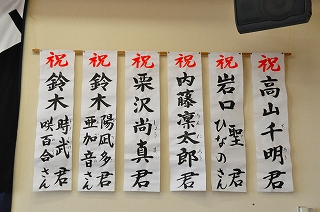 祝 高山千明君
祝 岩口 聖君 ひなのさん
祝 内藤凛太郎君
祝 栗沢尚真君
祝 鈴木 陽凪多君 亜加音さん
祝 鈴木 時武君 咲百合さん